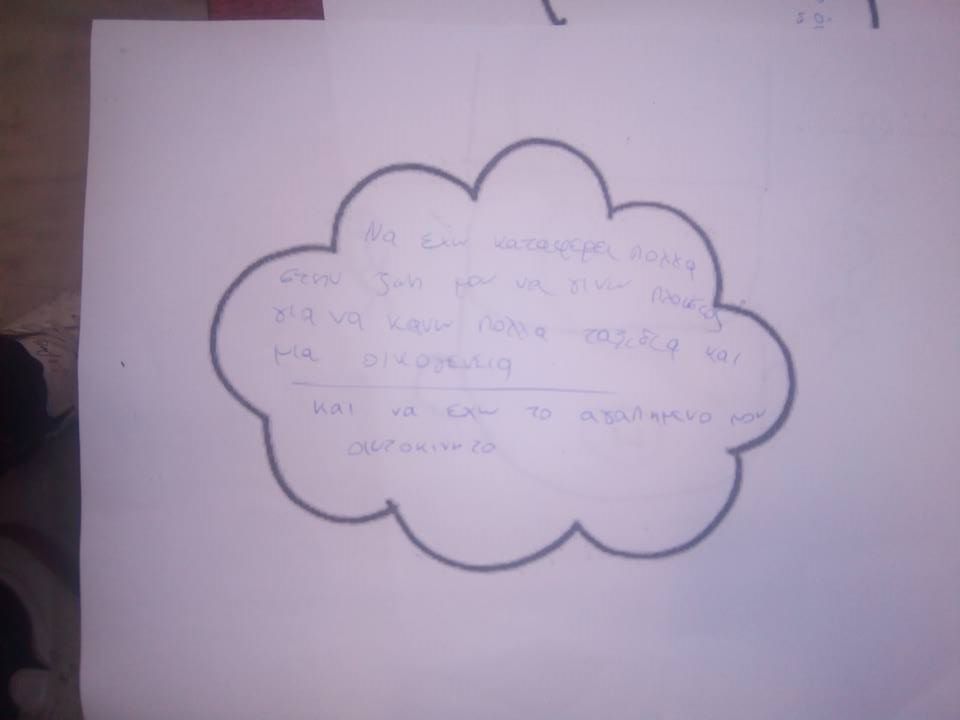 Να εχω καταφερει πολλα
στην ζωη μου να γινω πλουσιος
για να κανω πολλα ταξιδια και
μια οικογενεια
και να εχω το αγαπημενο μου
αυτοκινητο